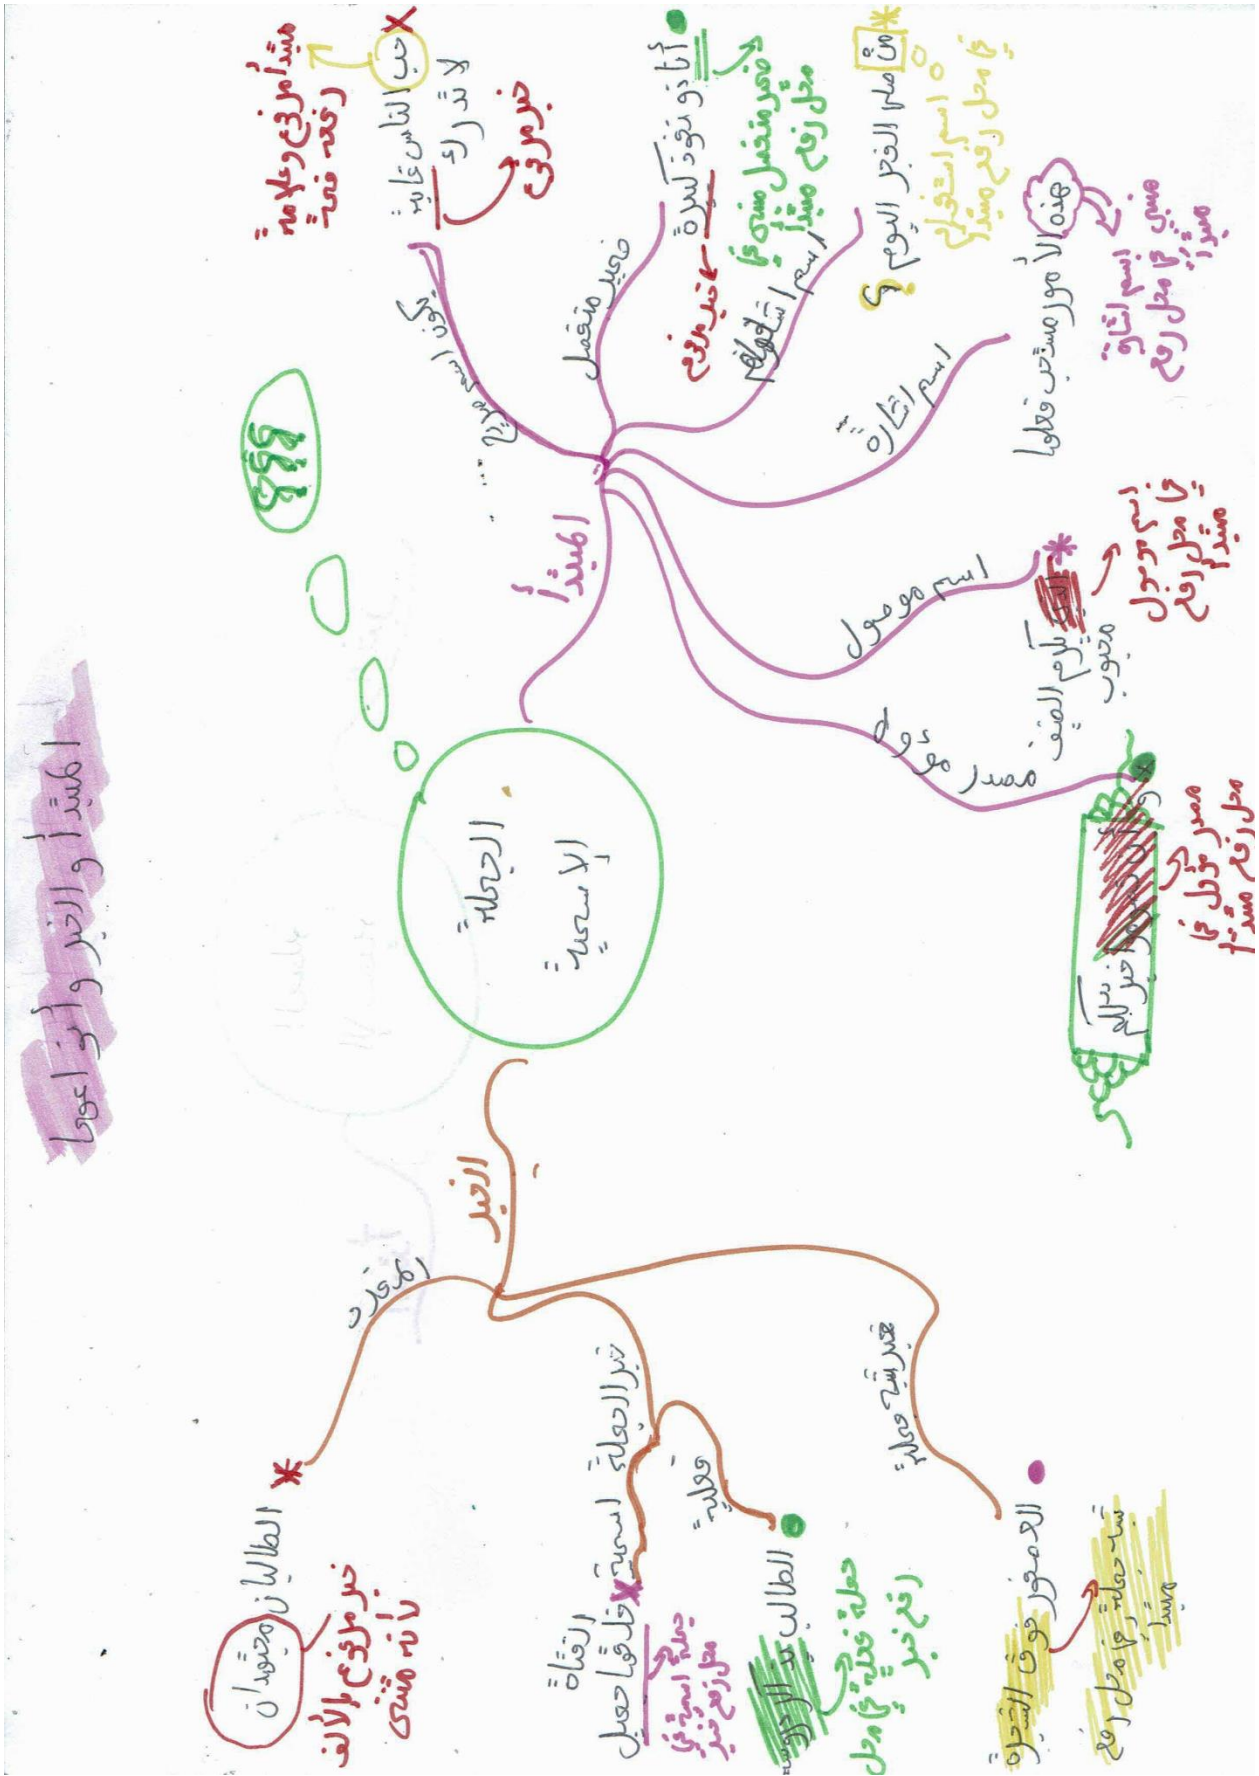 المبتدأ والخبر وأنواعهما
؟؟؟
الجملة
الإسمية
المبتدأ
يكون اسم صريح ....
حب الناس غاية
لا تدرك
مبتدأ مرفوع وعلامة
رفعه ضمة
خبر مرفوع
ضمير منفصل
أنا ذو نقود كثيرة
ضمير منفصل مبني في
محل رفع مبتدأ
خبر مرفوع
اسم استفهام
من صلى الفجر اليوم ؟
اسم استفهام
في محل رفع مبتدأ
اسم اشارة
هذه الأمور مستحب فعلها
اسم اشارة
مبني في محل رفع
مبتدأ
اسم موصول
الذي يكرم الضيف
محبوب
اسم موصول
في محل رفع
مبتدأ
مصدر مؤول
وأن تصوموا خير لكم
مصدر مؤول في
محل رفع مبتدأ
الخبر
المفرد
الطالبان مجتهدان
خبر مرفوع بالألف
لأنه مثنى
خبر الجملة
اسمية
الفتاة
خلقها جميل
جملة اسمية في
محل رفع خبر
فعلية
الطالب يدرس
جملة فعلية في محل
رفع خبر
خبر شبه جملة
العصفور فوق الشجرة
شبه جملة في محل رفع
مبتدأ